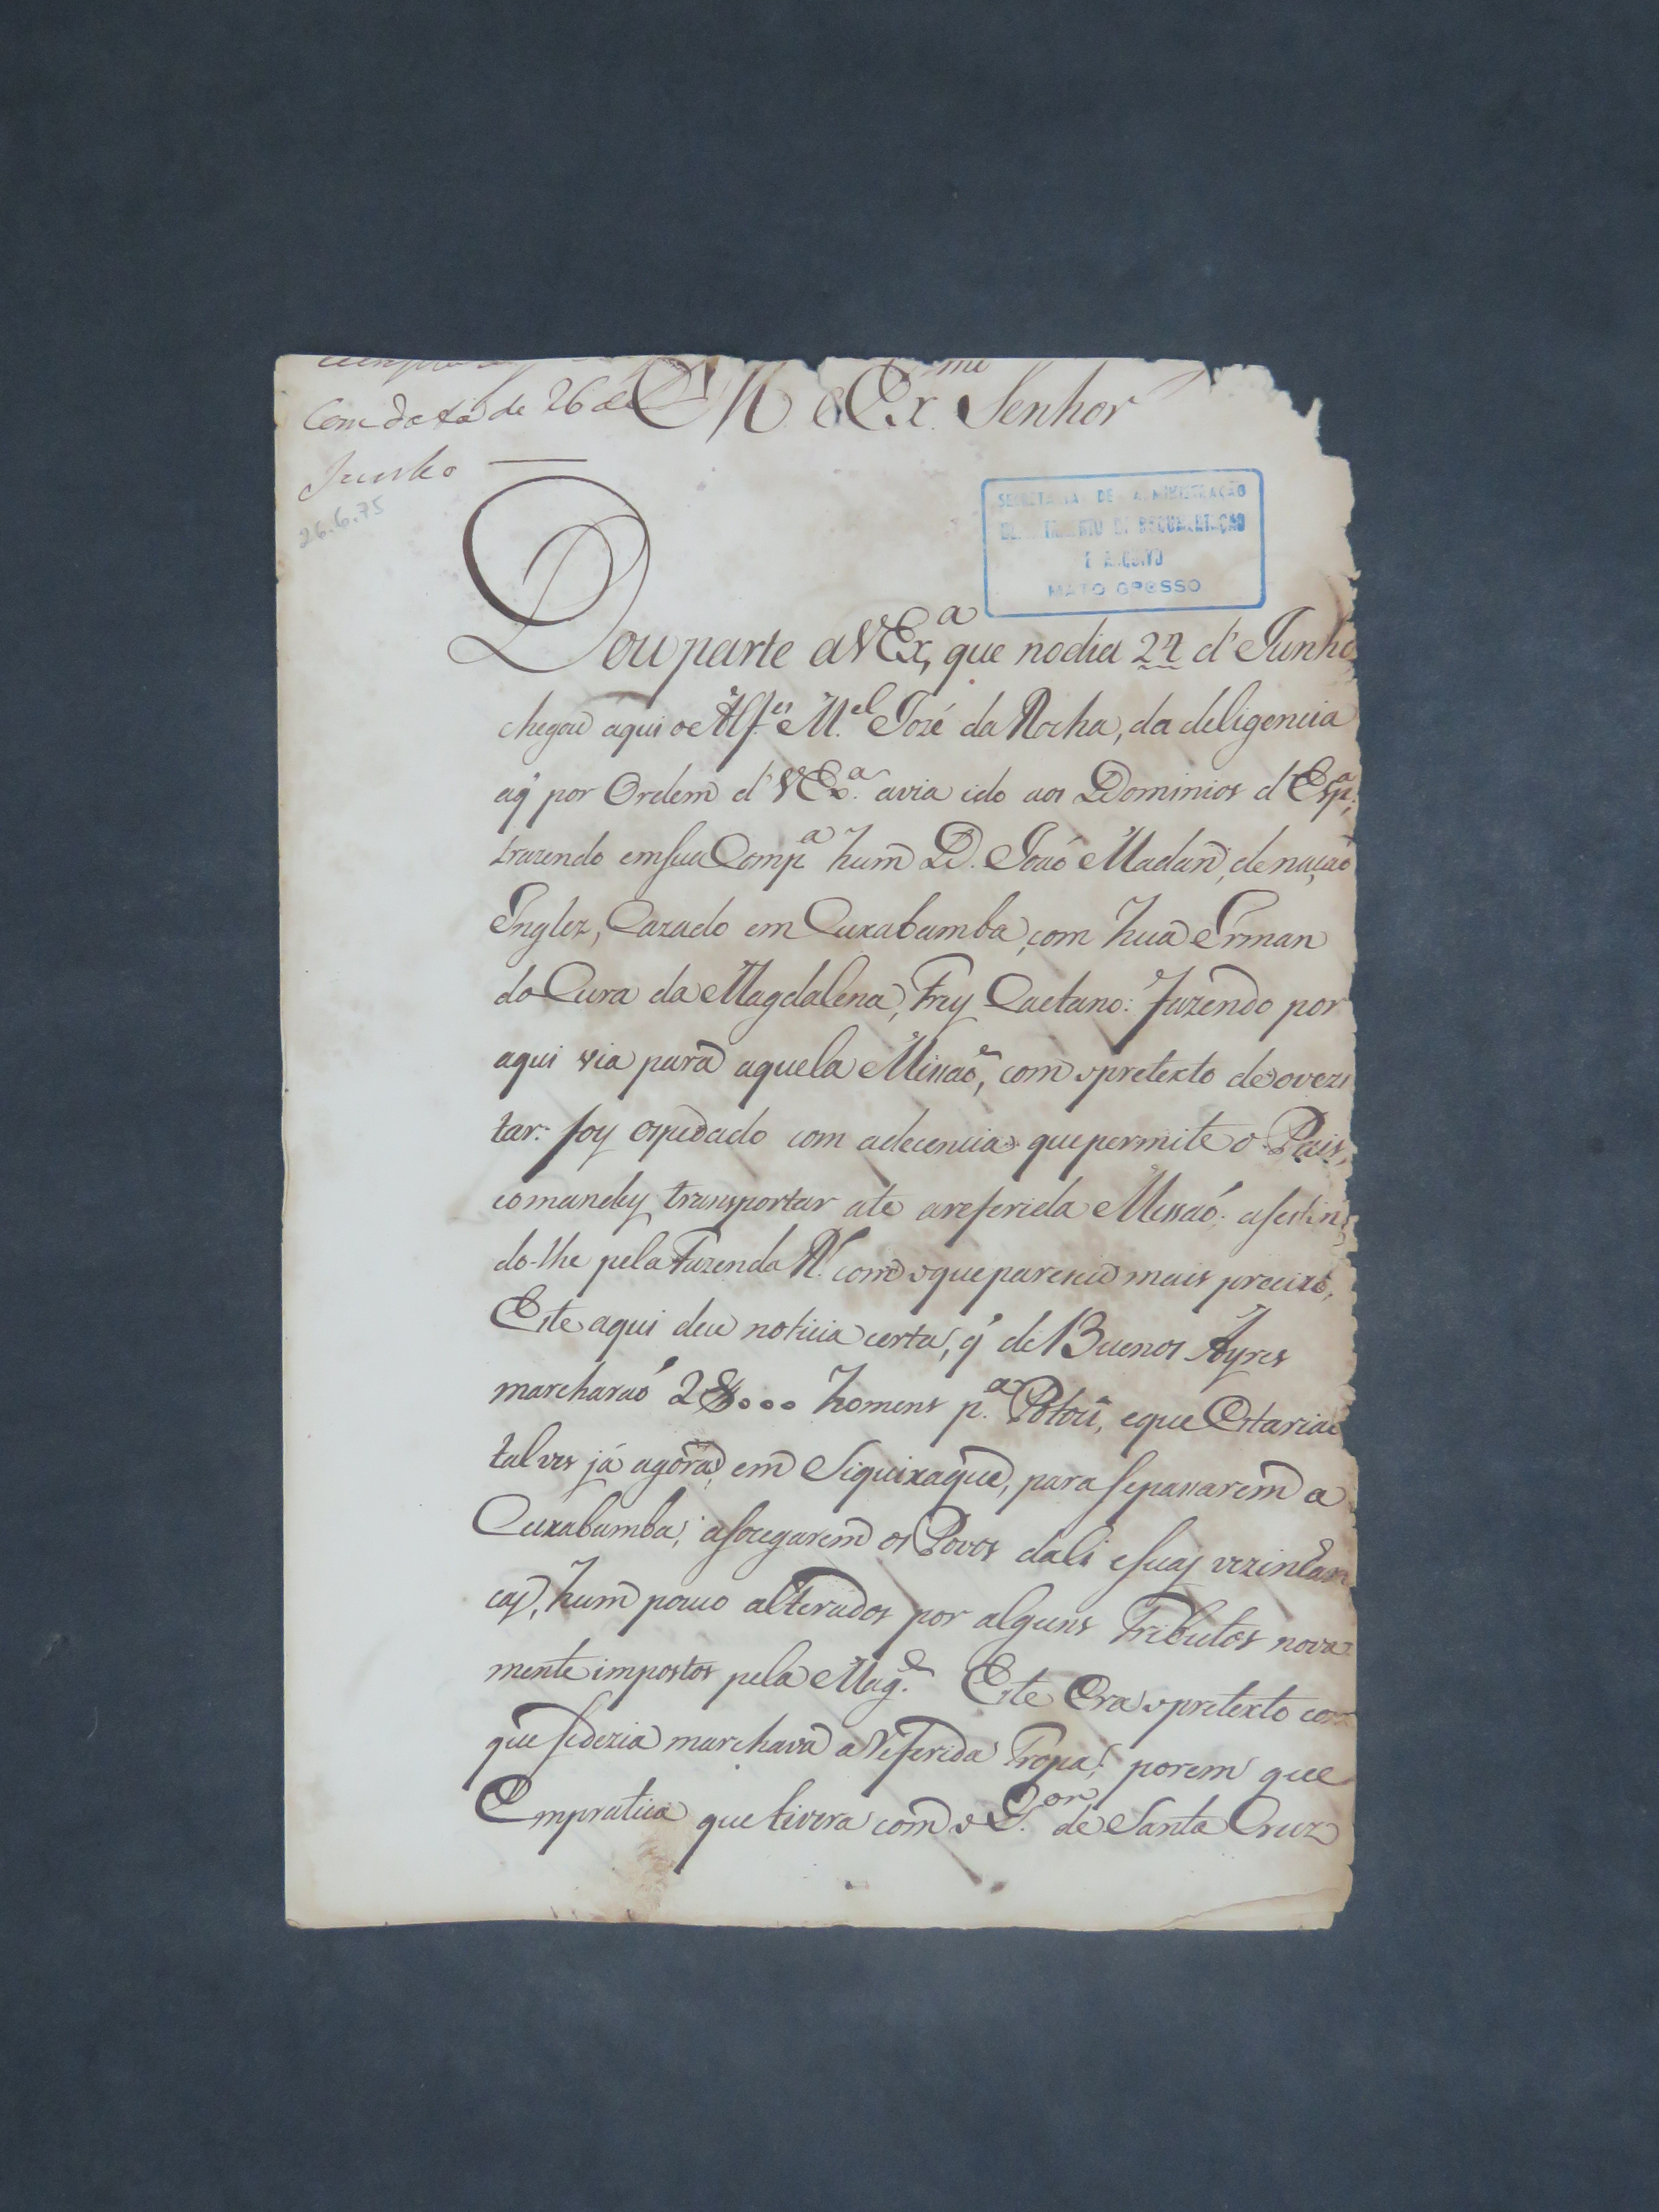 Com data de 26 de
Junho
26.6.75
Ill. e Ex.mo Senhor
SECRETARIA DE ADMINISTRAÇÃO
DEPARTAMENTO DE DOCUMENTAÇÃO
E ARQUIVO
MATO GROSSO
Dou parte a VEx.a, que no dia 27 d' Junho
chegou aqui o Alf.es M.el Jozé da Rocha, da deligencia
aq' por Ordem d' VEx.a avia ido aos Dominios d' Esp.a,
trazendo em sua Comp.a hum D. Joaõ Madan, de naçaõ
Inglez, Cazado em Cuxabamba, com hua Erman
do Cura da Magdalena, Frey Caetano: fazendo por
aqui via para aquela Missaõ, com o pretexto de o vezi
tar: foy ospedado com a decencia que permite o Pais,
eo mandey transportar ate a referida Missaõ; asestin
do-lhe pela Fazenda R.l com o que pareceu mais precizo,
Este aqui deu noticia certa, q' de Buenos Ayres
marcharaõ 28000 homens p.a Potosi, e que Estariaõ
talves já agora em Siquixaque, para se passarem a
Cuxabamba, a socegarem os Povos dali e suas vezinhan
cas, hum pouco alterados por alguns Tributos nova
mente impostos pela Mag.e Este Era o pretexto com
que se dezia marchava a Referida Tropa; porem que
Em pratica que tivera com o G.or de Santa Cruz